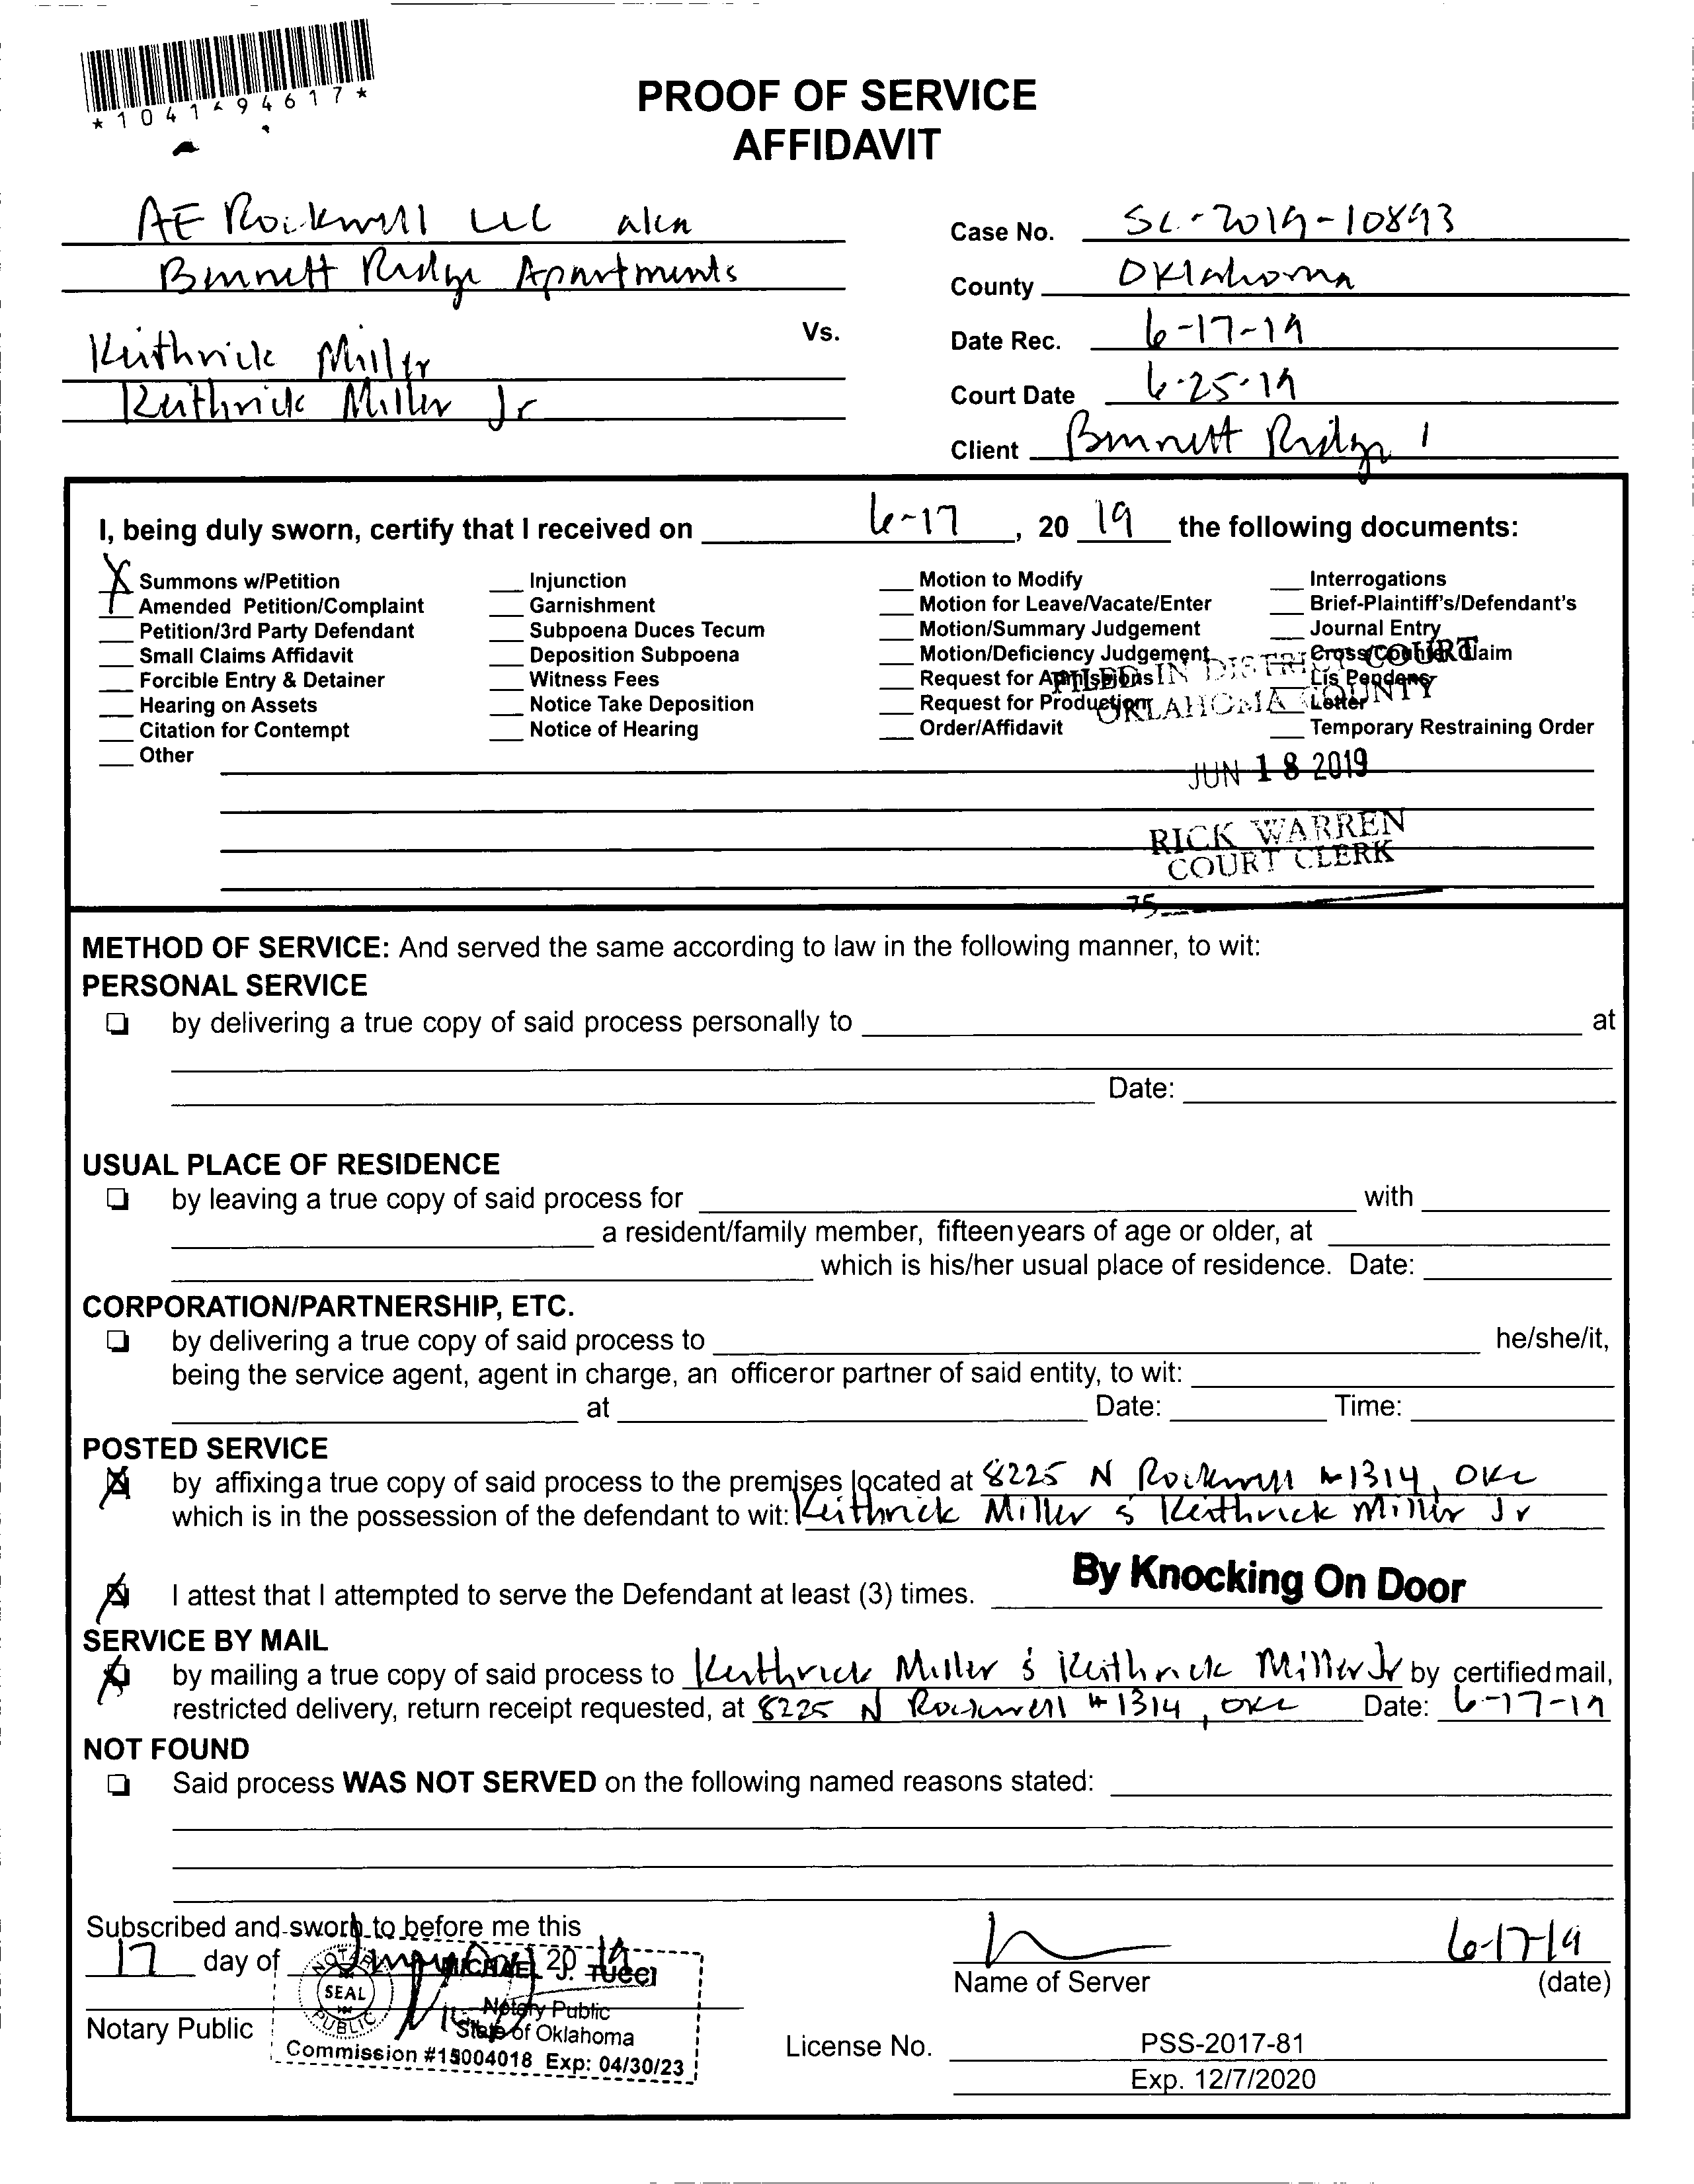 *1041494617*
PROOF OF SERVICE
AFFIDAVIT
AE Rockwell LLC aka
Bennett Ridge Apartments
Vs.
Keithrick Miller
Keithrick Miller Jr
Case No. SC-2019-10893
County Oklahoma
Date Rec. 6-17-19
Court Date 6-25-19
Client Bennett Ridge 1
I, being duly sworn, certify that I received on 6-17, 20 19 the following documents:
X Summons w/Petition
Amended Petition/Complaint
Petition/3rd Party Defendant
Small Claims Affidavit
Forcible Entry & Detainer
Hearing on Assets
Citation for Contempt
Other
Injunction
Garnishment
Subpoena Duces Tecum
Deposition Subpoena
Witness Fees
Notice Take Deposition
Notice of Hearing
Motion to Modify
Motion for Leave/Vacate/Enter
Motion/Summary Judgement
Motion/Deficiency Judgement
Request for Admissions
Request for Production
Order/Affidavit
Interrogations
Brief-Plaintiff's/Defendant's
Journal Entry
Cross/Counter Claim
Lis Pendens
Letter
Temporary Restraining Order
FILED IN DISTRICT COURT
OKLAHOMA COUNTY
JUN 18 2019
RICK WARREN
COURT CLERK
75
METHOD OF SERVICE: And served the same according to law in the following manner, to wit:
PERSONAL SERVICE
by delivering a true copy of said process personally to at
Date:
USUAL PLACE OF RESIDENCE
by leaving a true copy of said process for with
a resident/family member, fifteen years of age or older, at
which is his/her usual place of residence. Date:
CORPORATION/PARTNERSHIP, ETC.
by delivering a true copy of said process to he/she/it,
being the service agent, agent in charge, an officer or partner of said entity, to wit:
at Date: Time:
POSTED SERVICE
X by affixing a true copy of said process to the premises located at 8225 N Rockwell #1314, OKC
which is in the possession of the defendant to wit: Keithrick Miller & Keithrick Miller Jr
X I attest that I attempted to serve the Defendant at least (3) times. By Knocking On Door
SERVICE BY MAIL
X by mailing a true copy of said process to Keithrick Miller & Keithrick Miller Jr by certified mail,
restricted delivery, return receipt requested, at 8225 N Rockwell #1314, OKC Date: 6-17-19
NOT FOUND
Said process WAS NOT SERVED on the following named reasons stated:
Subscribed and sworn to before me this
17 day of 20 19
Notary Public
NOTARY PUBLIC SEAL
MICHAEL J. TUCCI
Notary Public
State of Oklahoma
Commission #15004018 Exp: 04/30/23
6-17-19
Name of Server (date)
License No. PSS-2017-81
Exp. 12/7/2020